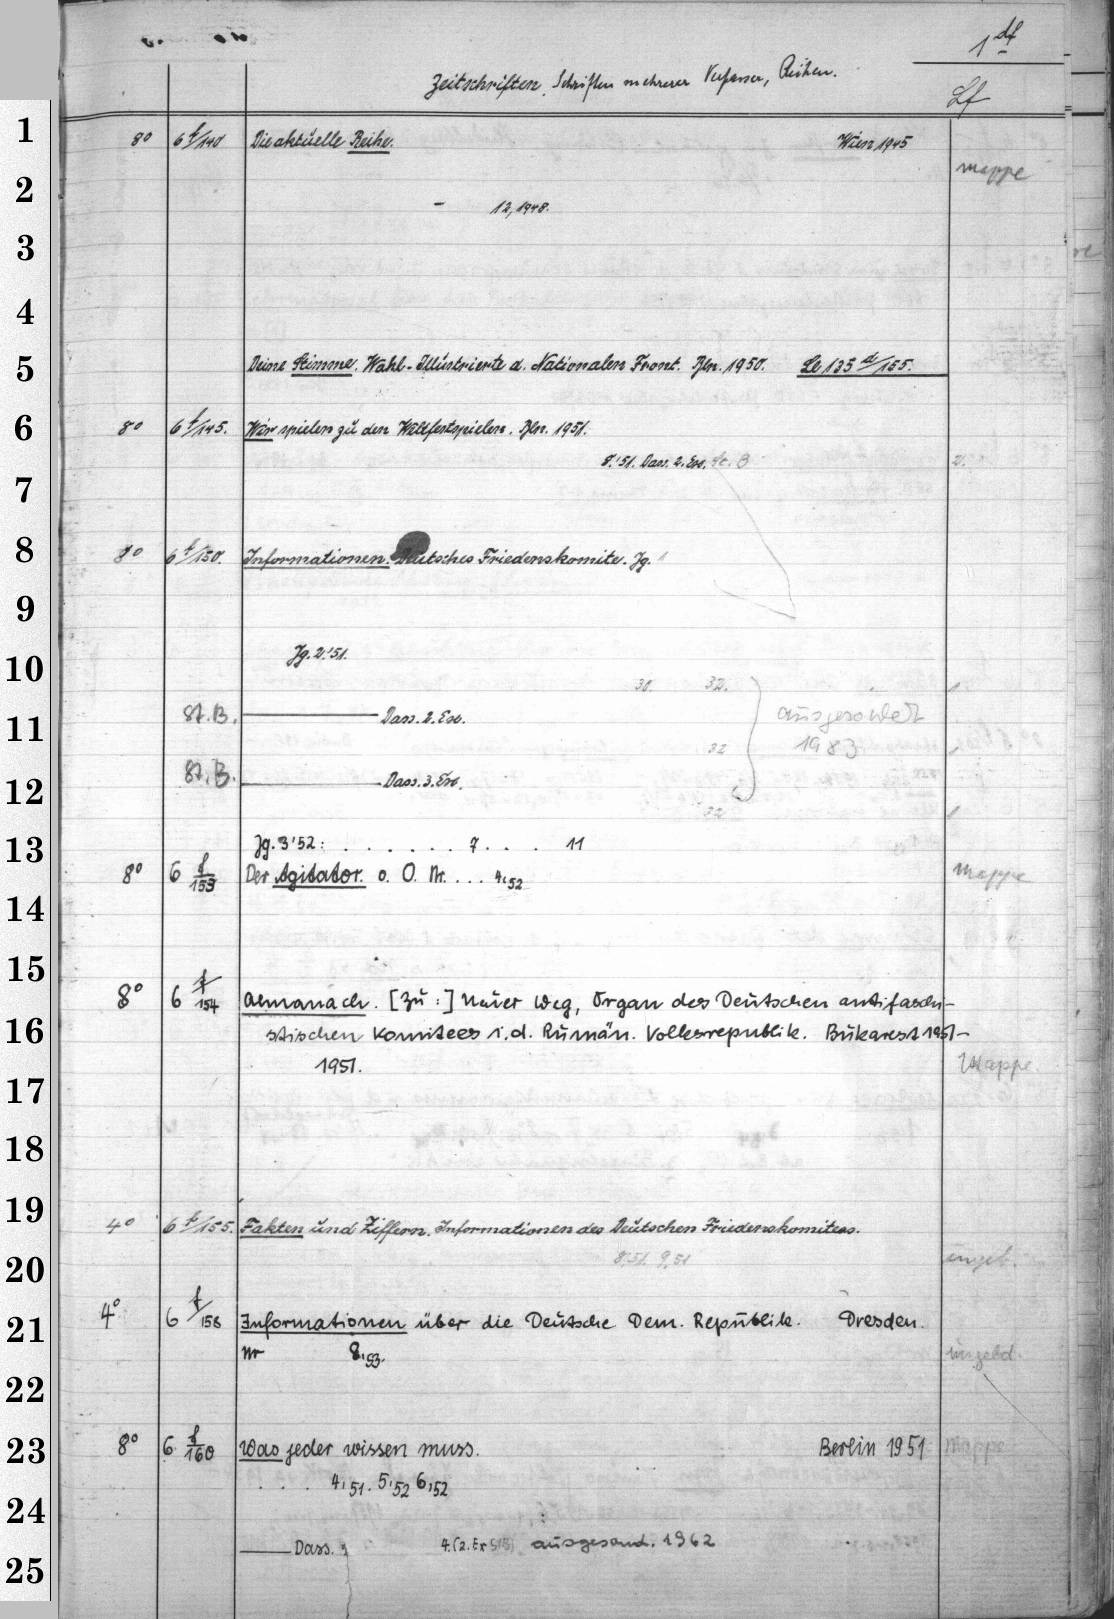 1 df
Zeitschriften, Schriften mehrerer Verfasser, Reihen.
Lf
1
8° 6 f/140 Die aktuelle Reihe. Wien 1945
mappe
2
- 12, 1948.
3
4
5
Deine Stimme. Wahl-Illustrierte d. Nationalen Front. Bln. 1950. Le 135 d/155.
6
8° 6 f/145. Wir spielen zu den Weltfestspielen. Bln. 1951.
8.'51. Dass. 2. Ex. St. B
7
8
8° 6 f/150. Informationen. Deutsches Friedenskomite. Jg. 1
9
10
Jg. 2.'51.
30. 32.
11
St. B. Dass. 2. Ex. ausgesondert
32 1983
12
St. B. Dass. 3. Ex.
32
13
Jg. 3'52: . . . . . . 7 . . . 11
8° 6 f/153 Der Agitator. o. O. Nr. . . . 4,52 Mappe
14
15
8° 6 f/154 Almanach. [Zu:] Neuer Weg, Organ des Deutschen antifaschi-
16
stischen Komitees i. d. Rumän. Volksrepublik. Bukarest 1951-
1951. Mappe.
17
18
19
4° 6 f/155. Fakten und Ziffern. Informationen des Deutschen Friedenskomitees.
20
8,51. 9,51 ungeb.
21
4° 6 f/158 Informationen über die Deutsche Dem. Republik. Dresden.
Nr 8,53. ungebd.
22
23
8° 6 f/160 Was jeder wissen muss. Berlin 1951 Mappe
. . . 4,51. 5,52 6,52
24
25
Dass. 4. (2. Ex ausgesond. 1962